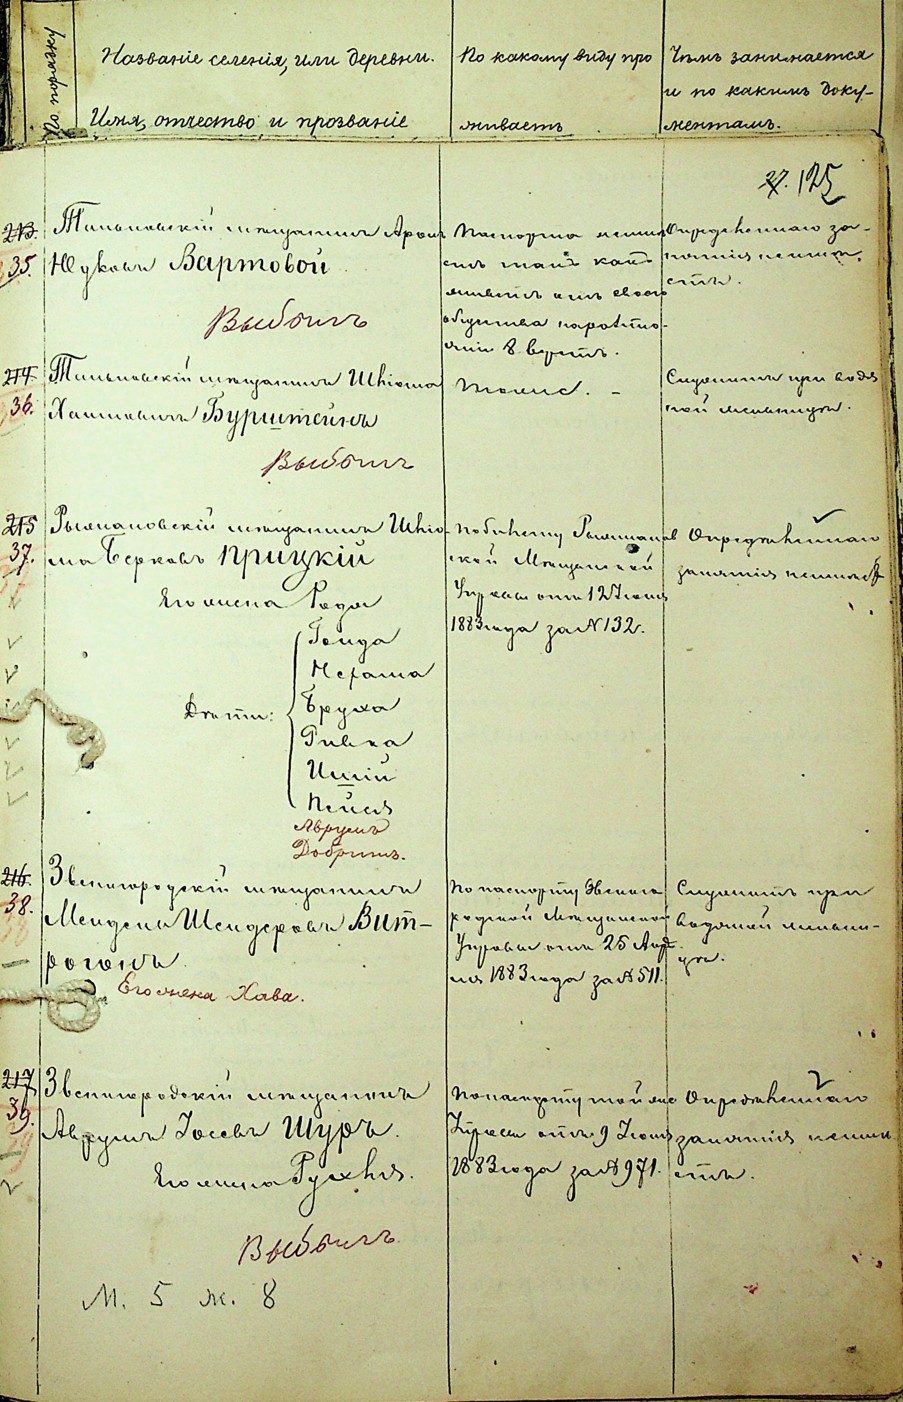 По порядку
Названіе селенія, или деревни.
Имя, отчество и прозваніе
По какому виду про
живаетъ
Чѣмъ занимается
и по какимъ доку-
ментамъ.
27. 125
213.
35.
Тальновскій мѣщанинъ Аронъ
Юдковъ Вартовой
Выбылъ
Паспорта неимѣ
етъ такъ какъ
живетъ отъ своего
общества
8 верстъ.
Опредѣленнаго за-
нятія неимѣ
етъ.
214.
36.
Тальновскій мѣщанинъ Шліома
Хаимовичъ Бурштейнъ
Выбылъ
тоже. -
Служитъ при водя
ной мельницѣ.
215
37.
мѣщанинъ Шліо-
ма Берковъ Прицкій
Его жена Рода
Дѣти:
Голда
Нехама
Бруха
Ривка
Иций
Пейся
Аврумъ
Добришъ.
По билету
ской Мѣщанской
Управы отъ 12 Іюня
1883 года за № 132.
Опредѣленнаго
занятія неимѣетъ
216.
38.
Звенигородскій мѣщанинъ
Мендель Шендеровъ Вит-
рогонъ
Его жена Хава.
По паспорту Звениго
родской Мѣщанской
Управы отъ 25 Апрѣ
ля 1883 года за № 511.
Служитъ при
водяной мельни-
цѣ.
217
39.
Звенигородскій мѣщанинъ
Аврумъ Іосевъ Шуръ.
Его жена Рухля.
Выбылъ
По паспорту той же
Управы отъ 9 Іюня
1883 года за № 971.
Опредѣленнаго
занятія неимѣ
етъ.
М. 5 ж. 8